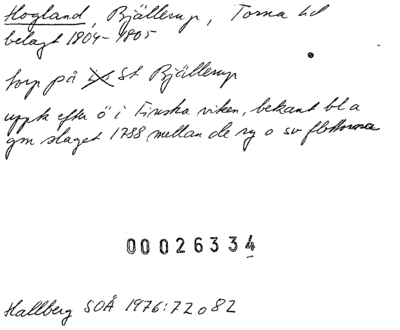 Hogland, Bjällerup, Torna hd
belagt 1804-1805
torp på St Bjällerup
uppk efter ö i Finska viken, bekant bl a
gm slaget 1788 mellan de ry o sv flottorna
00026334
Hallberg SOÅ 1976:72 o 82